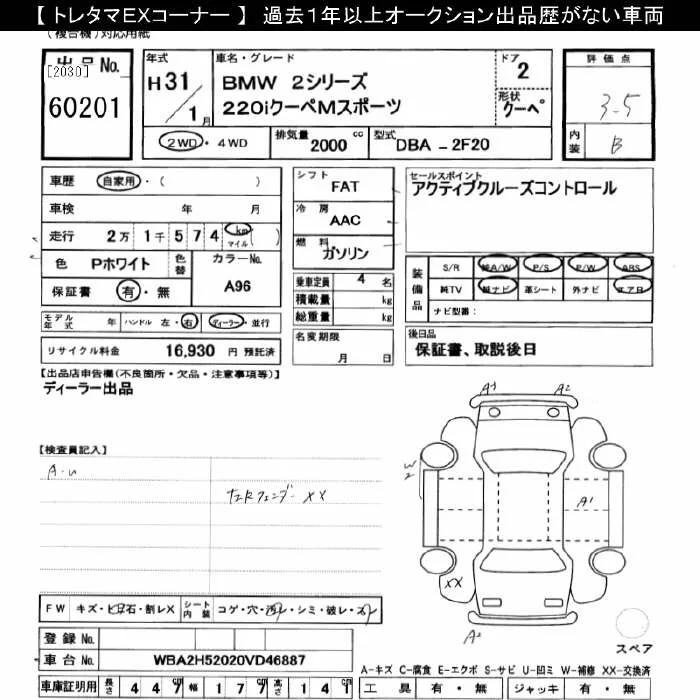 【 トレタマEXコーナー 】 過去1年以上オークション出品歴がない車両
(複合機)対応用紙
出品 No.
[2030]
60201
年式
H 31 / 1 月
車名・グレード
BMW 2シリーズ
220iクーペMスポーツ
ドア
2
形状
クーペ
2WD・4WD
排気量
2000 cc
型式
DBA - 2F20
評価点
3.5
内装
B
車歴 自家用・( )
車検 年 月
走行 2万 1千 5 7 4 km マイル ( )
色 Pホワイト 色替 カラーNo.
A96
保証書 有・無
モデル年式 年 ハンドル 左・右 ディーラー・並行
リサイクル料金 16,930 円 預託済
シフト
FAT
冷房
AAC
燃料
ガソリン
乗車定員 4 名
積載量 kg
総重量 kg
名変期限
月 日
セールスポイント
アクティブクルーズコントロール
装備品
S/R 純A/W P/S P/W ABS
純TV 純ナビ 革シート 外ナビ エアB
ナビ型番:
後日品
保証書、取説後日
【出品店申告欄(不良箇所・欠品・注意事項等)】
ディーラー出品
【検査員記入】
A-U
XX
A1
A2
W2
A1
XX
A2
スペア
FW キズ・ヒ石・割レX シート内装 コゲ・穴・汚レ・シミ・破レ・スレ
登録 No.
車台 No. WBA2H52020VD46887
車庫証明用 長さ 4 4 7 cm 幅 1 7 7 cm 高さ 1 4 1 cm
A-キズ C-腐食 E-エクボ S-サビ U-凹ミ W-補修 XX-交換済
工具 有・無 ジャッキ 有・無